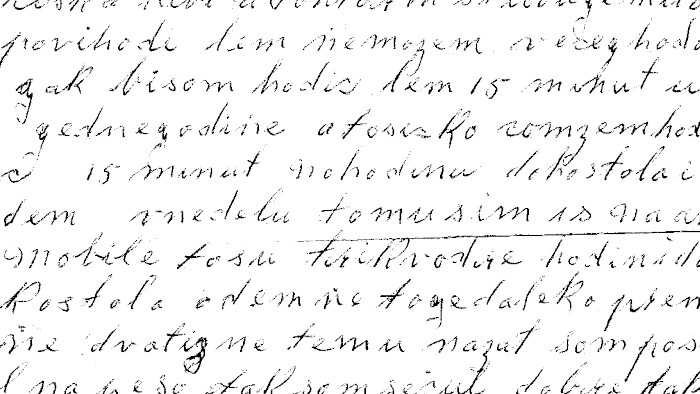 povihode lem nemozem vezeghoda
gak bisom hodic lem 15 minut u
gednegodine atosizko zomzemhod
c 15 minut nahodinu dokostola i
dem vnedelu tomusim is na a
mobile tosu trikvodre hodinid
kostola odemnetogedaleko prem
ne dvatizne temu nazat som pos
l na peso tak som sezul dobre tak